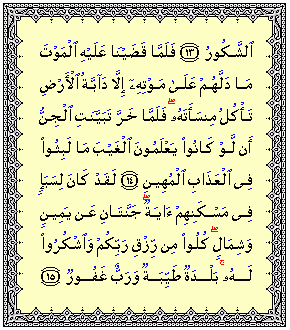 ٱلشَّكُورُ ۝١٣ فَلَمَّا قَضَيْنَا عَلَيْهِ ٱلْمَوْتَ
مَا دَلَّهُمْ عَلَىٰ مَوْتِهِۦٓ إِلَّا دَآبَّةُ ٱلْأَرْضِ
تَأْكُلُ مِنسَأَتَهُۥ ۖ فَلَمَّا خَرَّ تَبَيَّنَتِ ٱلْجِنُّ
أَن لَّوْ كَانُوا۟ يَعْلَمُونَ ٱلْغَيْبَ مَا لَبِثُوا۟
فِى ٱلْعَذَابِ ٱلْمُهِينِ ۝١٤ لَقَدْ كَانَ لِسَبَإٍ
فِى مَسْكَنِهِمْ ءَايَةٌ ۖ جَنَّتَانِ عَن يَمِينٍ
وَشِمَالٍ ۖ كُلُوا۟ مِن رِّزْقِ رَبِّكُمْ وَٱشْكُرُوا۟
لَهُۥ ۚ بَلْدَةٌ طَيِّبَةٌ وَرَبٌّ غَفُورٌ ۝١٥